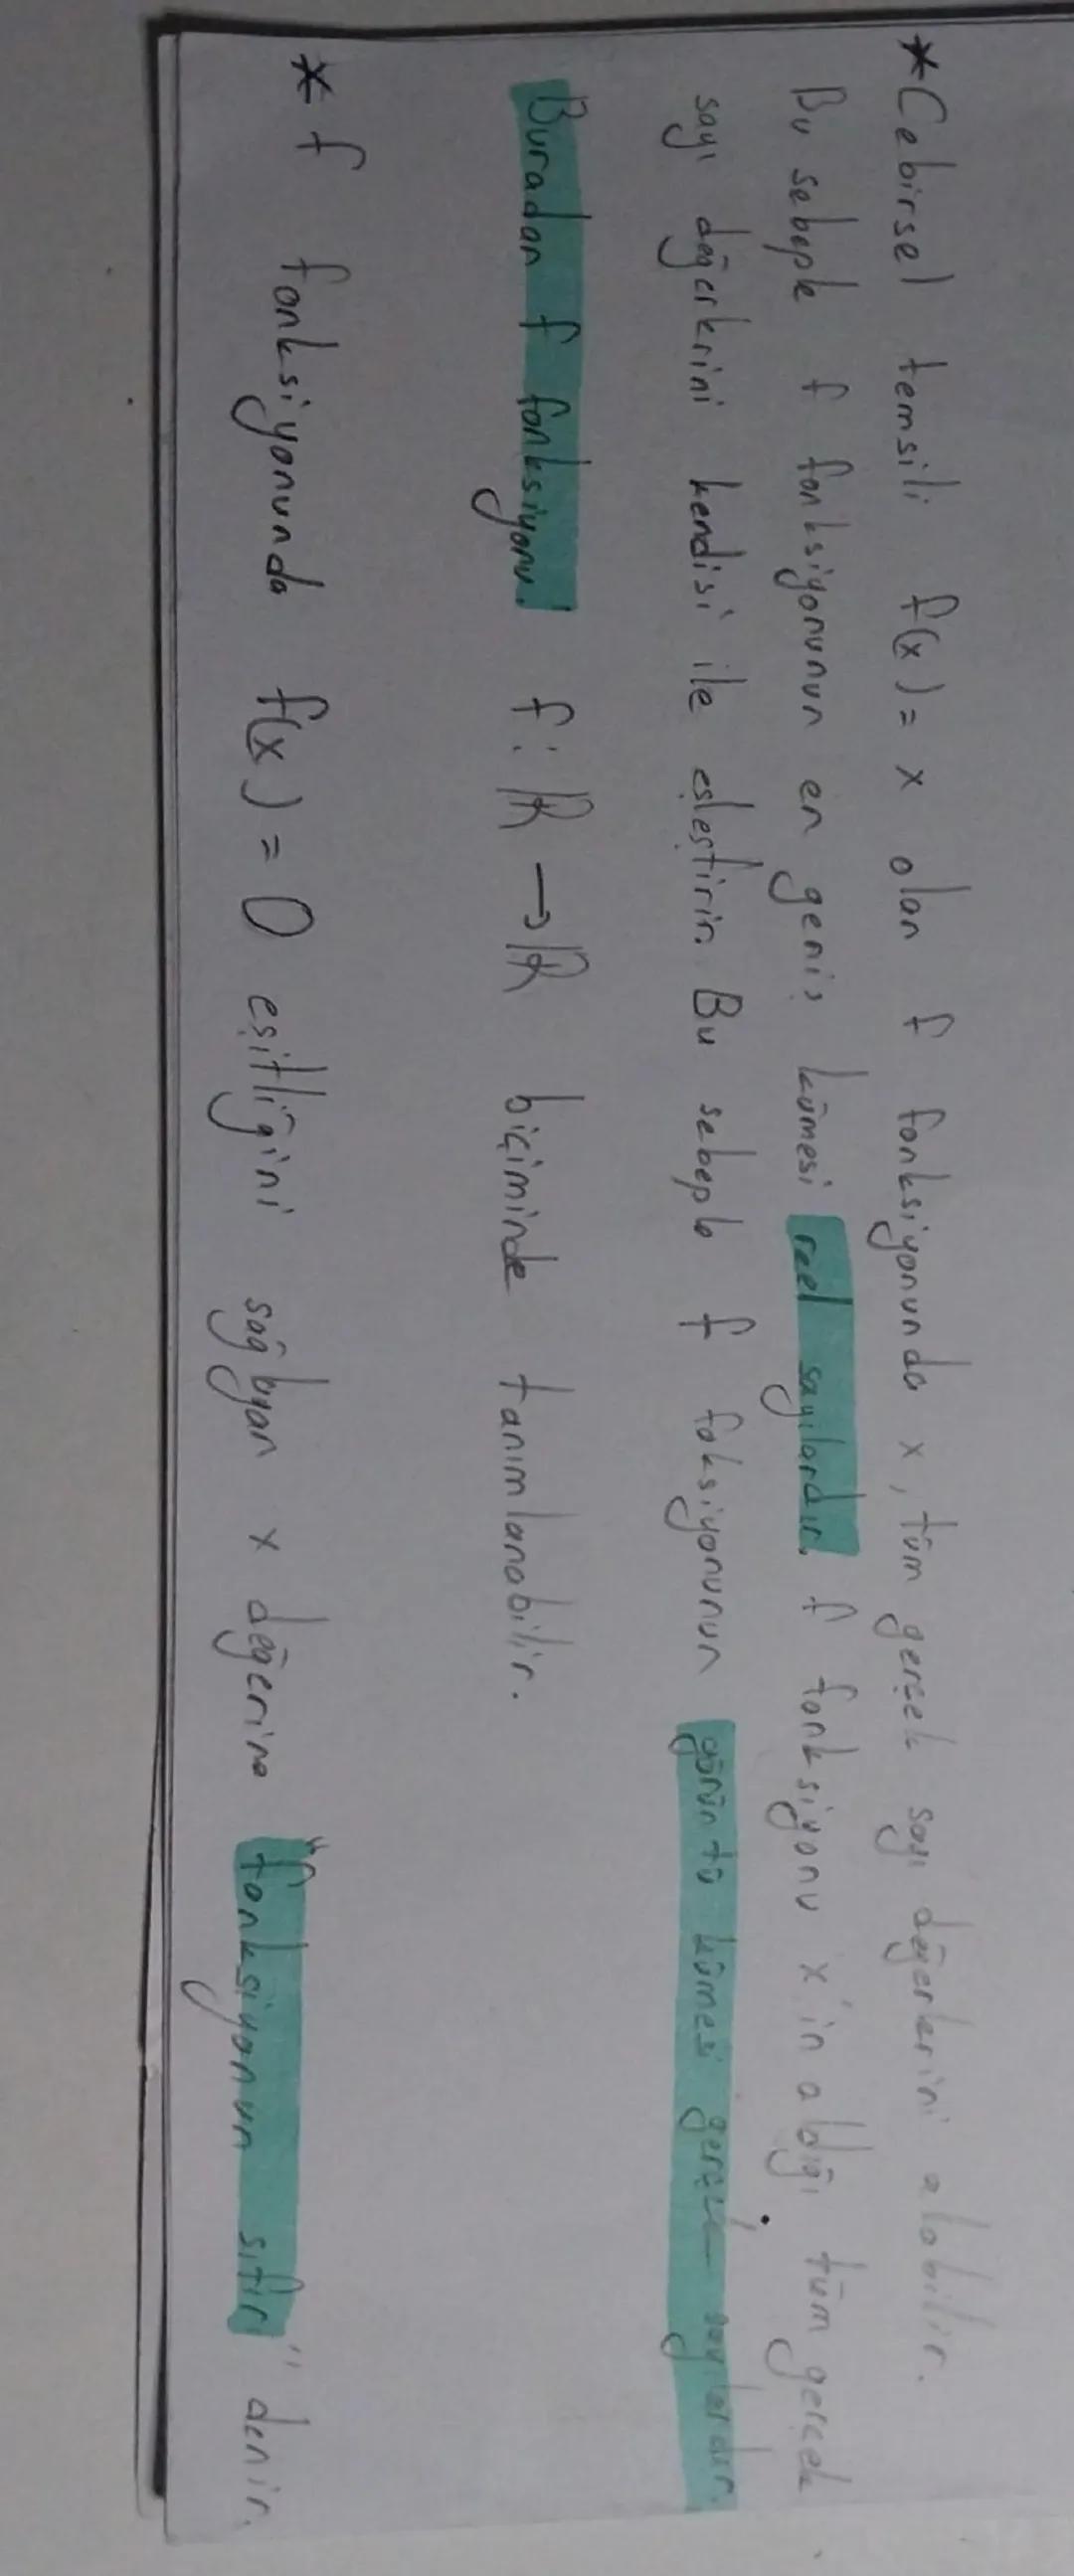 * Cebirsel temsili f(x) = x olan f fonksiyonunda x, tüm gerçek sayı değerlerini alabilir.
Bu sebeple f fonksiyonunun en geniş kümesi reel sayılardır. f fonksiyonu x'in aldığı tüm gerçek
sayı değerlerini kendisi ile eşleştirir. Bu sebeple f foksiyonunun görüntü kümesi gerçek sayılardır.
Buradan f fonksiyonu: f: ℝ → ℝ biçiminde tanımlanabilir.
* f fonksiyonunda f(x) = 0 eşitliğini sağlayan x değerine "fonksiyonun sıfırı" denir.